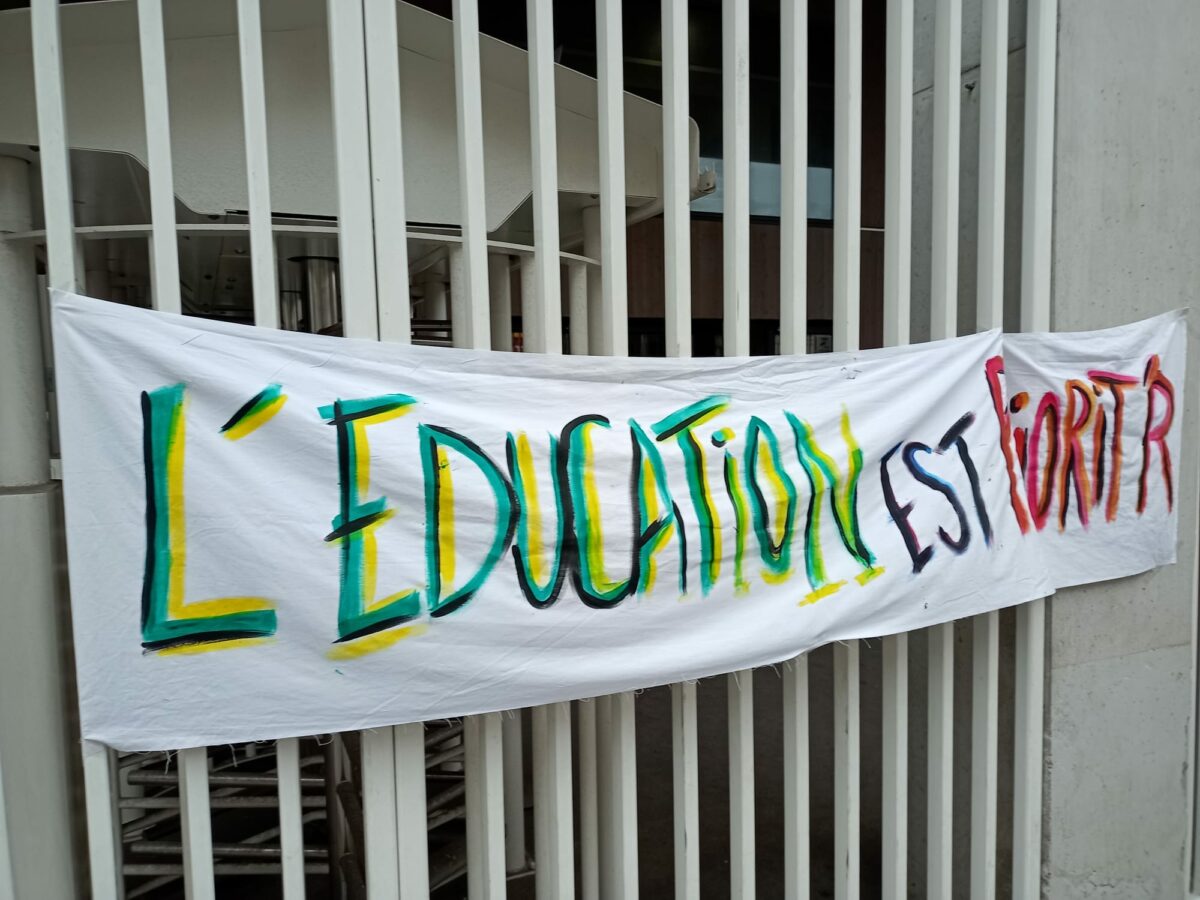 L'EDUCATiON EST PiORiT'R